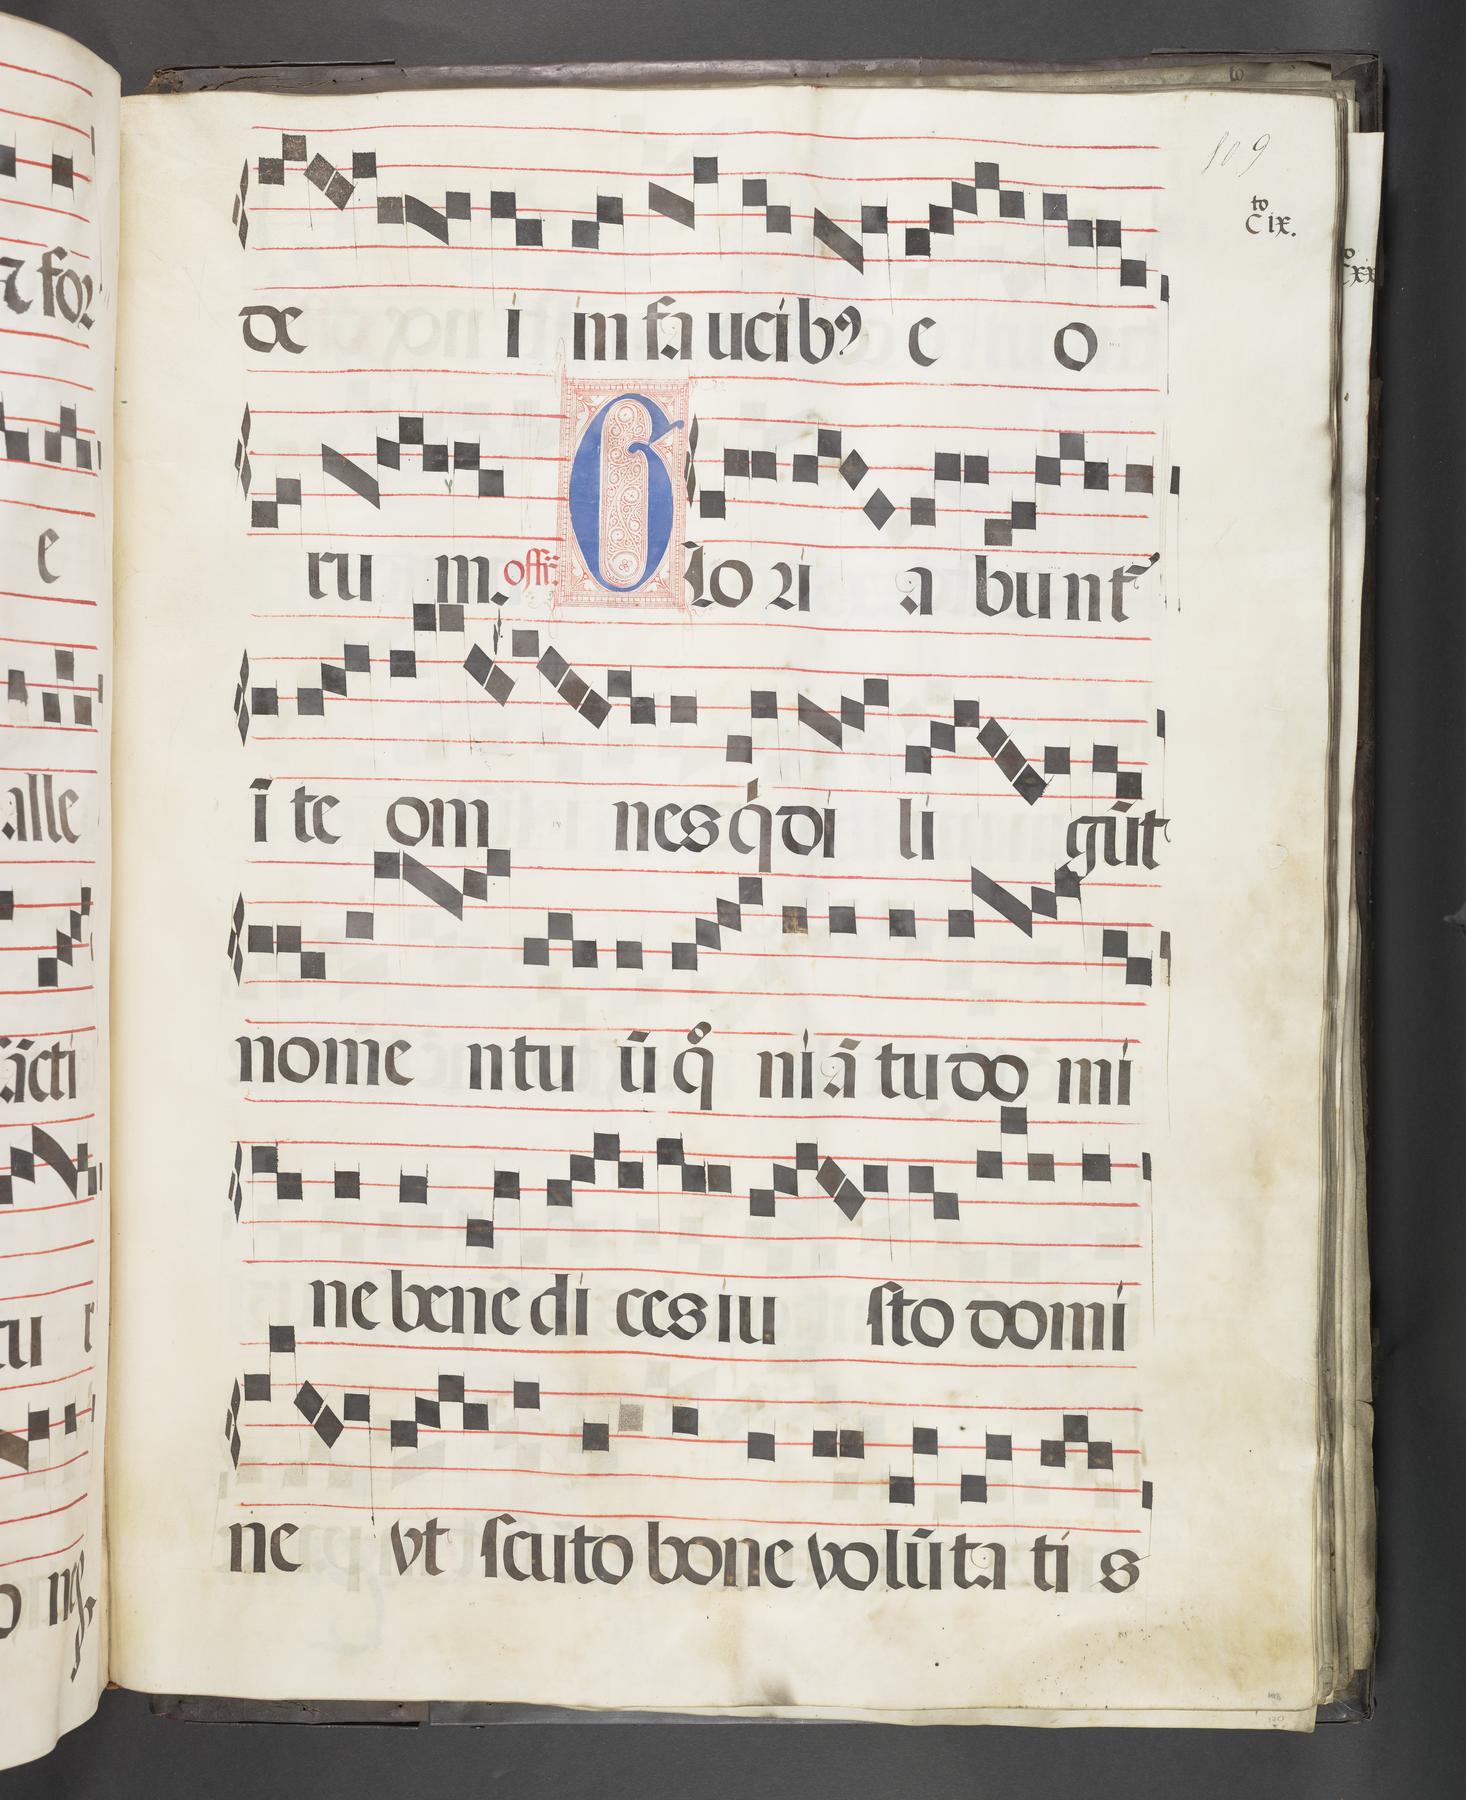 109
to
CIX.
de i in faucibꝰ e o
ru m. offi: Glo ri a bunt᷑
ī te om nes q̇ di li gūt
nome ntu ū qͦ niā tu do mi
ne bene di ces iu sto domi
ne vt scuto bone volūta ti s
for
e
alle
ācti
tu r